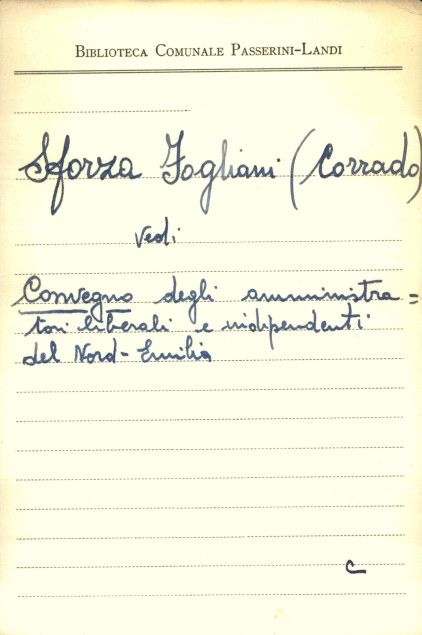 BIBLIOTECA COMUNALE PASSERINI-LANDI
Sforza Fogliani (Corrado)
Vedi
Convegno degli amministra=
tori liberali e indipendenti
del Nord-Emilia
C